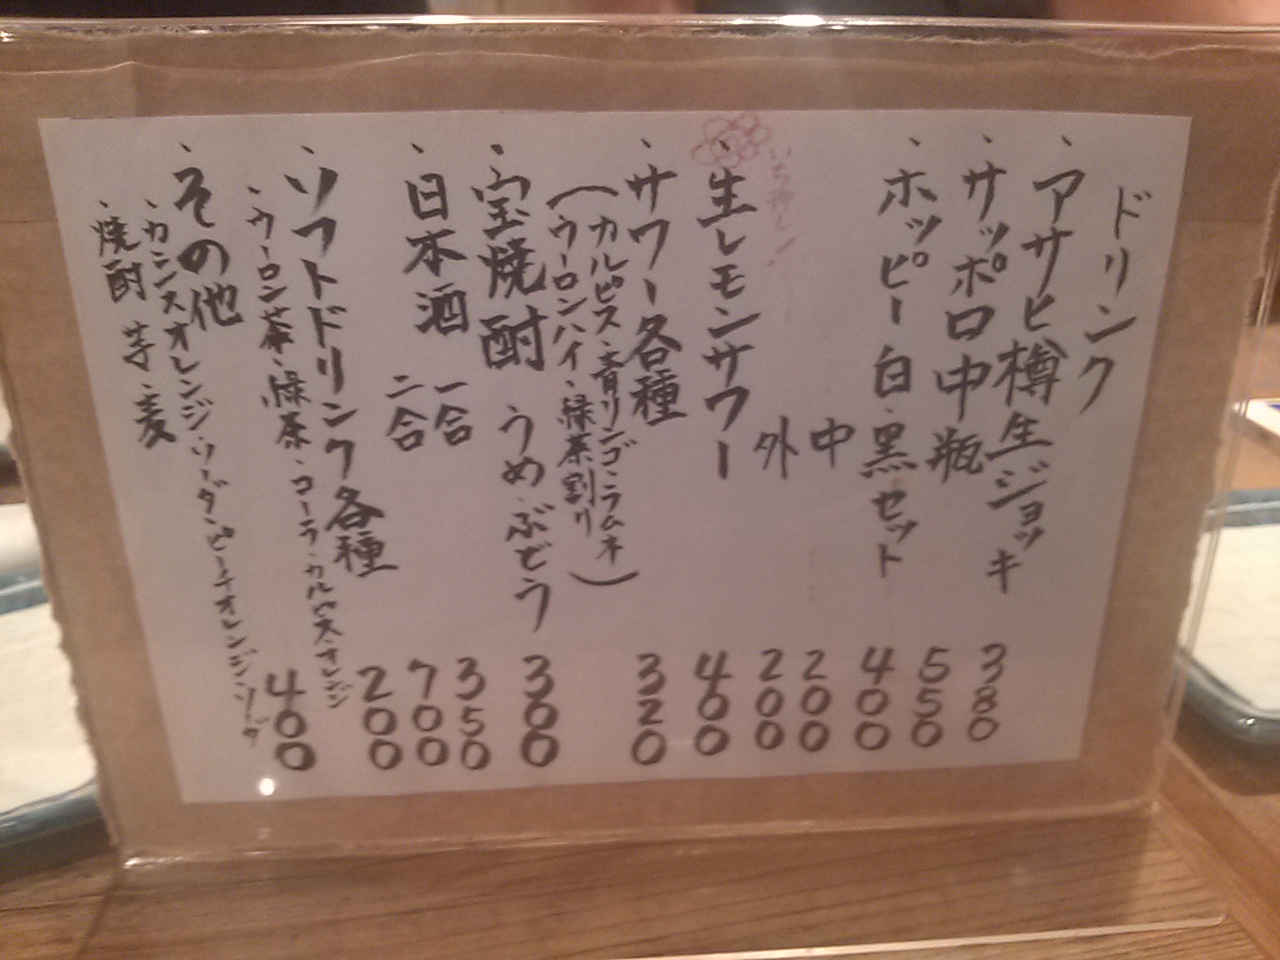 ドリンク
・アサヒ樽生ジョッキ 380
・サッポロ中瓶 550
・ホッピー白・黒セット 400
中 200
外 200
いち押し!
・生レモンサワー 400
・サワー各種 320
(カルピス・青リンゴ・ラムネ
ウーロンハイ・緑茶割り)
・宝焼酎 うめ・ぶどう 300
・日本酒 一合 350
二合 700
・ソフトドリンク各種 200
・ウーロン茶・緑茶・コーラ・カルピス・オレンジ
・その他 400
・カシスオレンジ・ソーダ・ピーチオレンジ・ソーダ
・焼酎 芋・麦